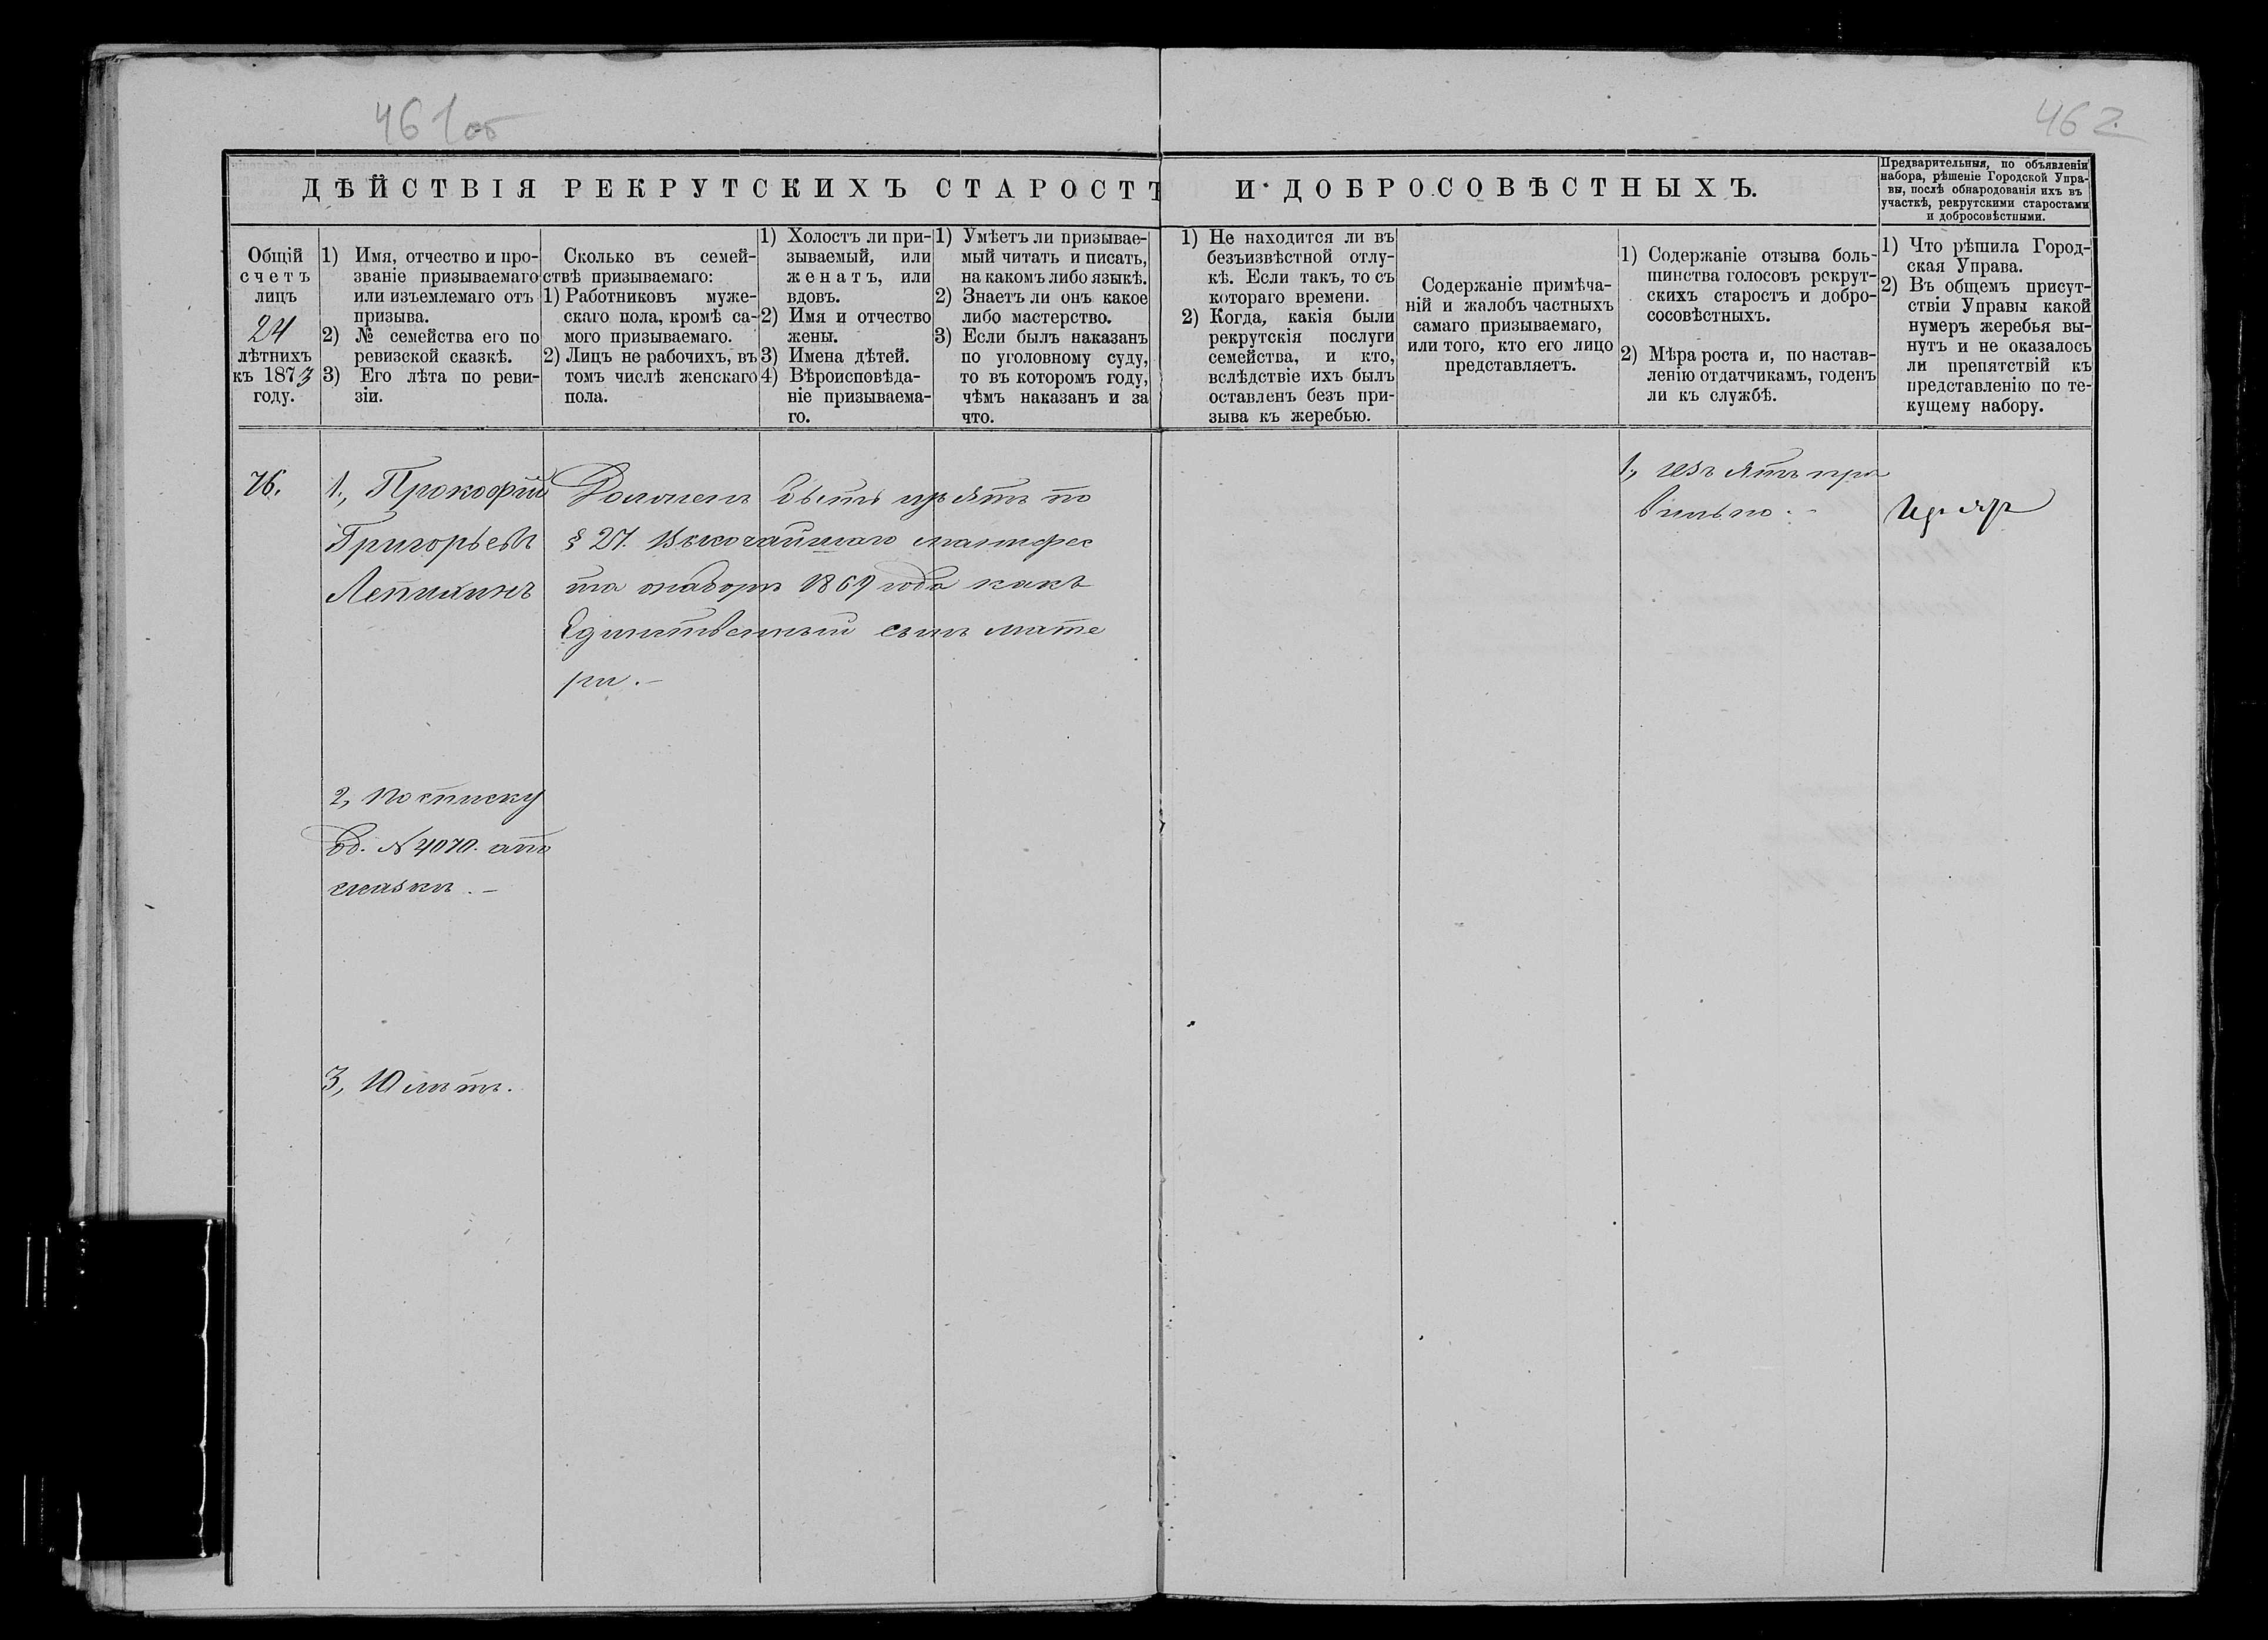 461об
462
ДѢЙСТВІЯ РЕКРУТСКИХЪ СТАРОСТЪ И ДОБРОСОВѢСТНЫХЪ.
Предварительныя, по объявленіи
набора, рѣшеніе Городской Упра-
вы, послѣ обнародованія ихъ въ
участкѣ, рекрутскими старостами
и добросовѣстными.
Общій
счетъ
лицъ
24
лѣтнихъ
къ 1873
году.
1) Имя, отчество и про-
званіе призываемаго
или изъемлемаго отъ
призыва.
2) № семейства его по
ревизской сказкѣ.
3) Его лѣта по реви-
зіи.
Сколько въ семей-
ствѣ призываемаго:
1) Работниковъ муже-
скаго пола, кромѣ са-
мого призываемаго.
2) Лицъ не рабочихъ, въ
томъ числѣ женскаго
пола.
1) Холостъ ли при-
зываемый, или
женатъ, или
вдовъ.
2) Имя и отчество
жены.
3) Имена дѣтей.
4) Вѣроисповѣда-
ніе призываема-
го.
1) Умѣетъ ли призывае-
мый читать и писать,
на какомъ либо языкѣ.
2) Знаетъ ли онъ какое
либо мастерство.
3) Если былъ наказанъ
по уголовному суду,
то въ которомъ году,
чѣмъ наказанъ и за
что.
1) Не находится ли въ
безъизвѣстной отлу-
кѣ. Если такъ, то съ
котораго времени.
2) Когда, какія были
рекрутскія послуги
семейства, и кто,
вслѣдствіе ихъ былъ
оставленъ безъ при-
зыва къ жеребью.
Содержаніе примѣча-
ній и жалобъ частныхъ
самаго призываемаго,
или того, кто его лицо
представляетъ.
1) Содержаніе отзыва боль-
шинства голосовъ рекрут-
скихъ старостъ и добро-
сосовѣстныхъ.
2) Мѣра роста и, по настав-
ленію отдатчикамъ, годенъ
ли къ службѣ.
1) Что рѣшила Город-
ская Управа.
2) Въ общемъ присут-
ствіи Управы какой
нумеръ жеребья вы-
нутъ и не оказалось
ли препятствій къ
представленію по те-
кущему набору.
76.
1., Прокофій
Григорьевъ
Лепихинъ
2, По списку
об. № 4070. от
сказки. –
3, 10 лѣтъ.
Долженъ быть изъятъ по
§ 27. Высочайшаго манифес
та о наборѣ 1869 года какъ
Единственный сынъ мате
ри. –
1., изъятъ пра
вильно. –